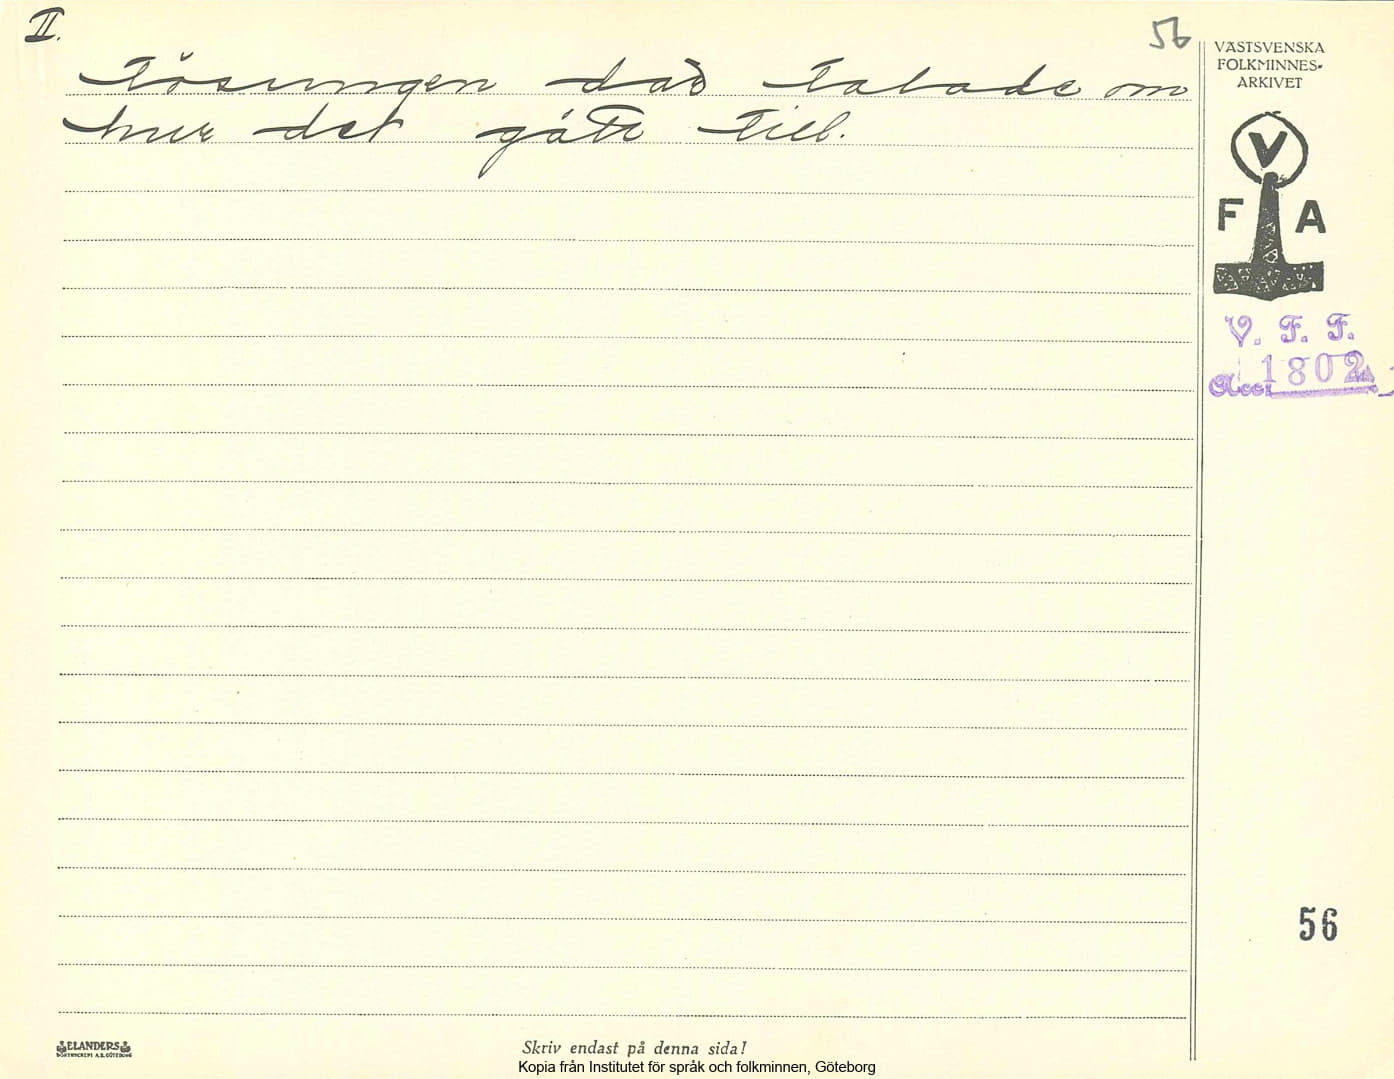 II.
56
lösningen då talade om
hur det gått till.
VÄSTSVENSKA
FOLKMINNES-
ARKIVET
V
F A
V. F. F.
Acc. 1802
56
ELANDERS
BOKTRYCKERI A.B. GÖTEBORG
Skriv endast på denna sida!
Kopia från Institutet för språk och folkminnen, Göteborg